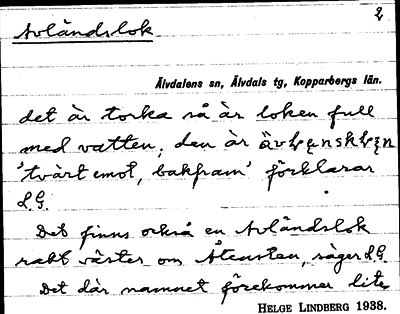 2
Avländslok
Älvdalens sn, Älvdals tg, Kopparbergs län.
det är torka så är loken full
med vatten, den är
'tvärt emot, bakfram' förklarar
L.G.
Det finns också en Avländslok
rakt väster om Åtensten, säger L.G.
Det där namnet förekommer lite
HELGE LINDBERG 1938.